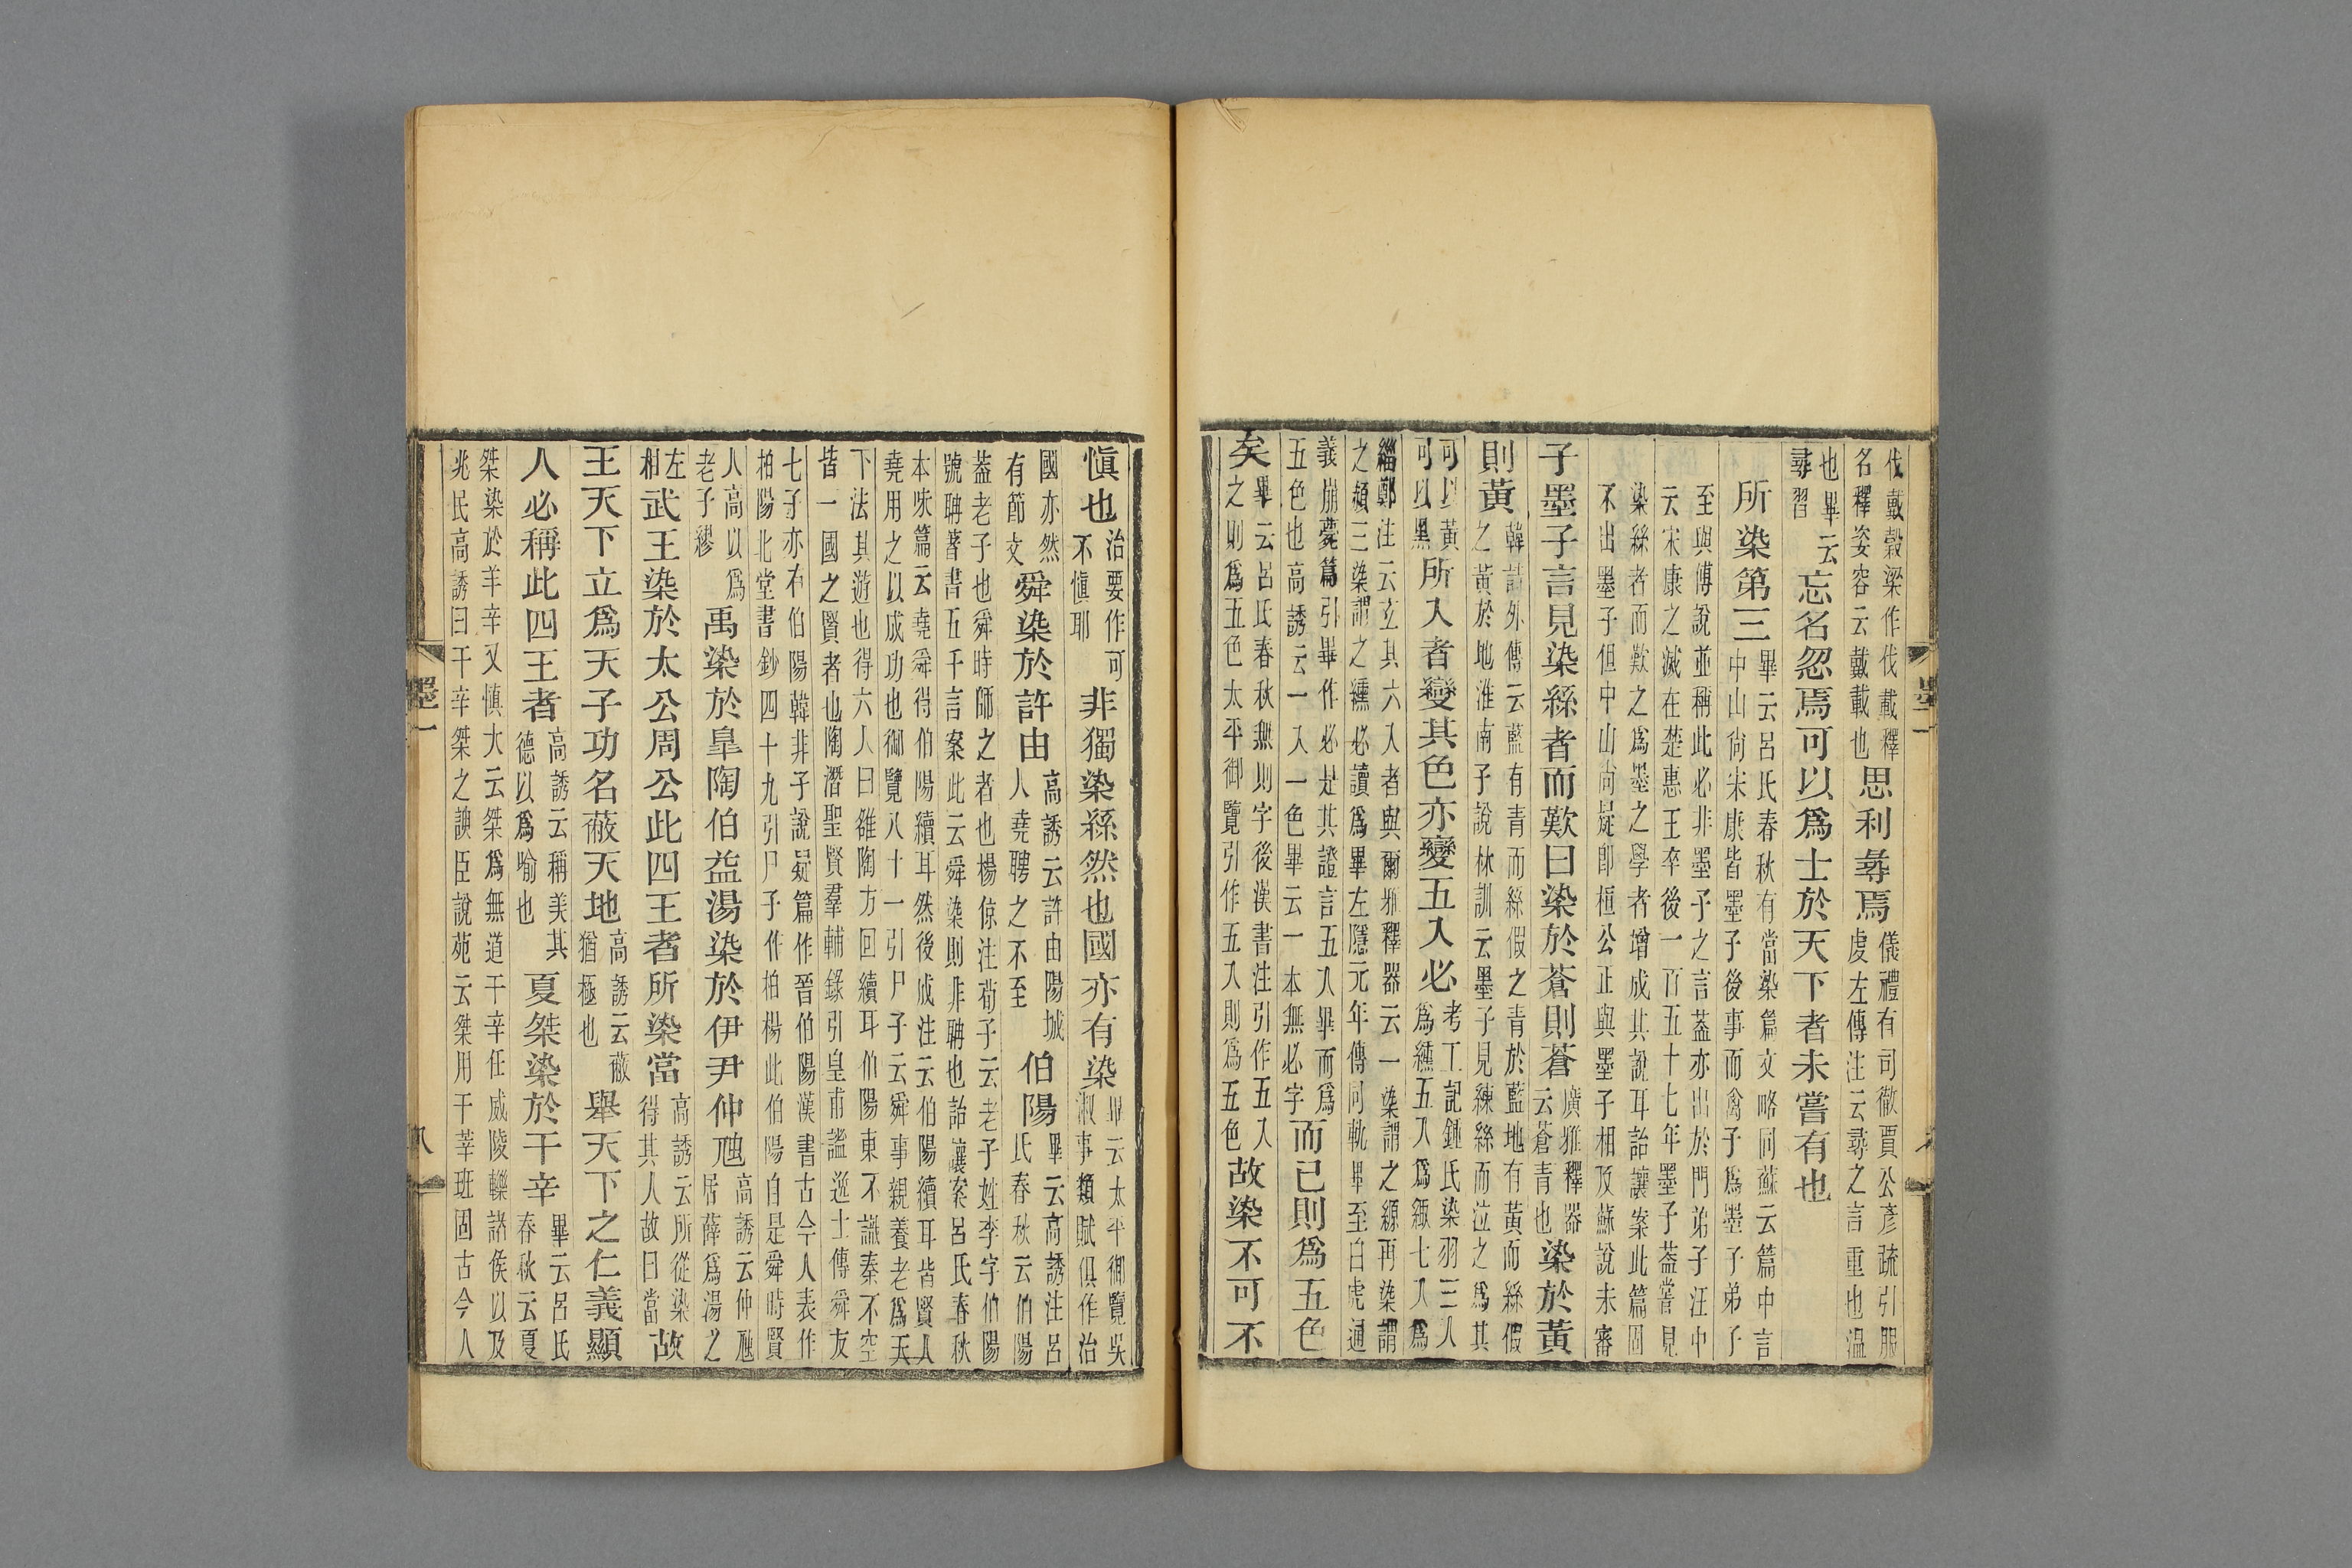 伐戴穀梁作伐載釋
名釋姿容云戴載也
思利尋焉
儀禮有司徹賈公彥疏引服
虔左傳注云尋之言重也溫
也畢云
尋習
忘名忽焉可以爲士於天下者未嘗有也
所染第三
畢云呂氏春秋有當染篇文略同蘇云篇中言
中山尙宋康皆墨子後事而禽子爲墨子弟子
至與傅說並稱此必非墨子之言葢亦出於門弟子汪中
云宋康之滅在楚惠王卒後一百五十七年墨子葢嘗見
染絲者而歎之爲墨之學者增成其說耳詒讓案此篇固
不出墨子但中山尙疑卽桓公正與墨子相及蘇說未審
子墨子言見染絲者而歎曰染於蒼則蒼
廣雅釋器
云蒼青也
染於黃
則黃
韓詩外傳云藍有青而絲假之青於藍地有黃而絲假
之黃於地淮南子說林訓云墨子見練絲而泣之爲其
可以黃
可以黑
所入者變其色亦變五入必
考工記鍾氏染羽三入
爲纁五入爲緅七入爲
緇鄭注云玄其六入者與爾雅釋器云一染謂之縓再染謂
之赬三染謂之纁必讀爲畢左隱元年傳同軌畢至白虎通
義崩薨篇引畢作必是其證言五入畢而爲
五色也高誘云一入一色畢云一本無必字
而已則爲五色
矣
畢云呂氏春秋無則字後漢書注引作五入
之則爲五色太平御覽引作五入則爲五色
故染不可不
墨一
慎也
治要作可
不慎耶
非獨染絲然也國亦有染
畢云太平御覽吳
淑事類賦俱作治
國亦然
有節文
舜染於許由
高誘云許由陽城
人堯聘之不至
伯陽
畢云高誘注呂
氏春秋云伯陽
葢老子也舜時師之者也楊倞注荀子云老子姓李字伯陽
號聃著書五千言案此云舜染則非聃也詒讓案呂氏春秋
本味篇云堯舜得伯陽續耳然後成注云伯陽續耳皆賢人
堯用之以成功也御覽八十一引尸子云舜事親養老爲天
下法其遊也得六人曰雒陶方回續耳伯陽東不識秦不空
皆一國之賢者也陶潛聖賢羣輔錄引皇甫謐逸士傳舜友
七子亦有伯陽韓非子說疑篇作晉伯陽漢書古今人表作
柏陽北堂書鈔四十九引尸子作柏楊此伯陽自是舜時賢
人高以爲
老子繆
禹染於皐陶伯益湯染於伊尹仲虺
高誘云仲虺
居薛爲湯之
左
相
武王染於太公周公此四王者所染當
高誘云所從染
得其人故曰當
故
王天下立爲天子功名蔽天地
高誘云蔽
猶極也
舉天下之仁義顯
人必稱此四王者
高誘云稱美其
德以爲喻也
夏桀染於干辛
畢云呂氏
春秋云夏
桀染於羊辛又慎大云桀爲無道干辛任威陵轢諸侯以及
兆民高誘曰干辛桀之諛臣說苑云桀用干莘班固古今人
墨一
八